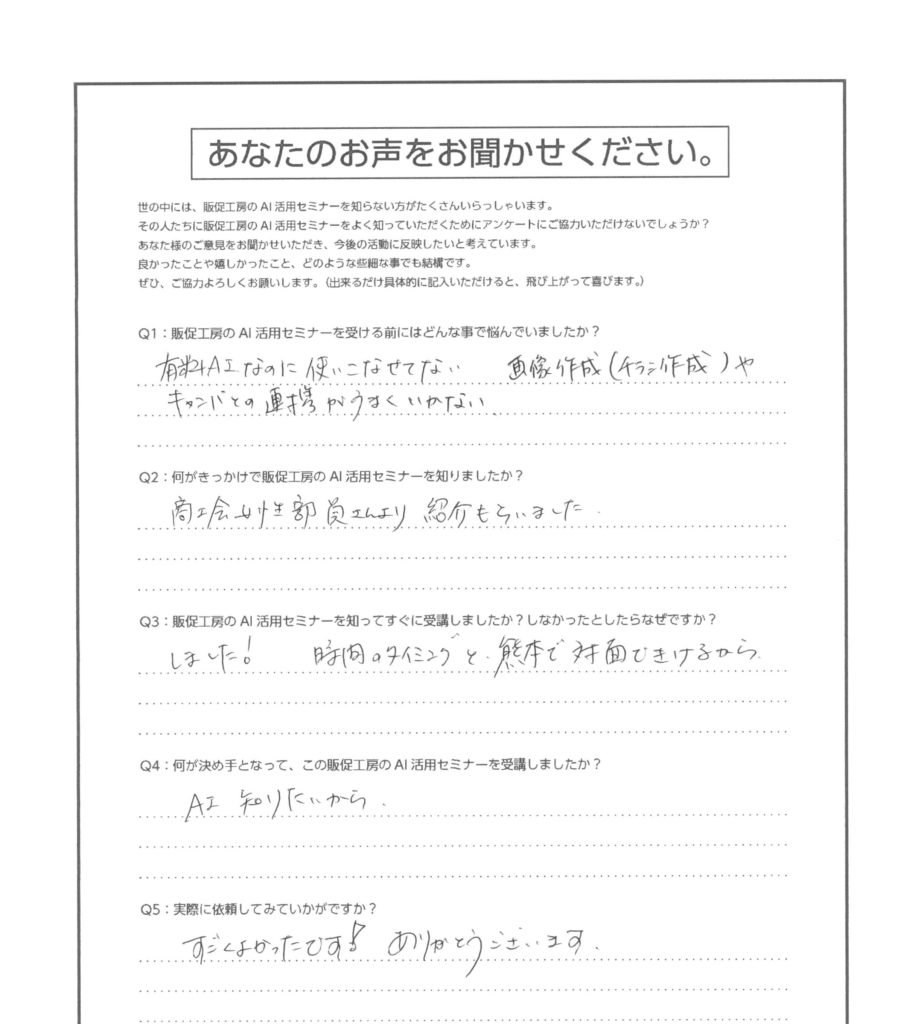 あなたのお声をお聞かせください。
世の中には、販促工房のAI活用セミナーを知らない方がたくさんいらっしゃいます。
その人たちに販促工房のAI活用セミナーをよく知っていただくためにアンケートにご協力いただけないでしょうか？
あなた様のご意見をお聞かせいただき、今後の活動に反映したいと考えています。
良かったことや嬉しかったこと、どのような些細な事でも結構です。
ぜひ、ご協力よろしくお願いします。（出来るだけ具体的に記入いただけると、飛び上がって喜びます。）
Q1：販促工房のAI活用セミナーを受ける前にはどんな事で悩んでいましたか？
有料AIなのに使いこなせてない　画像作成（チラシ作成）や
キャンバとの連携がうまくいかない
Q2：何がきっかけで販促工房のAI活用セミナーを知りましたか？
商工会女性部員さんより紹介もらいました
Q3：販促工房のAI活用セミナーを知ってすぐに受講しましたか？しなかったとしたらなぜですか？
しました！　時間のタイミングと、熊本で対面できけるから
Q4：何が決め手となって、この販促工房のAI活用セミナーを受講しましたか？
AI知りたいから．
Q5：実際に依頼してみていかがですか？
すごくよかったです！ありがとうございます．